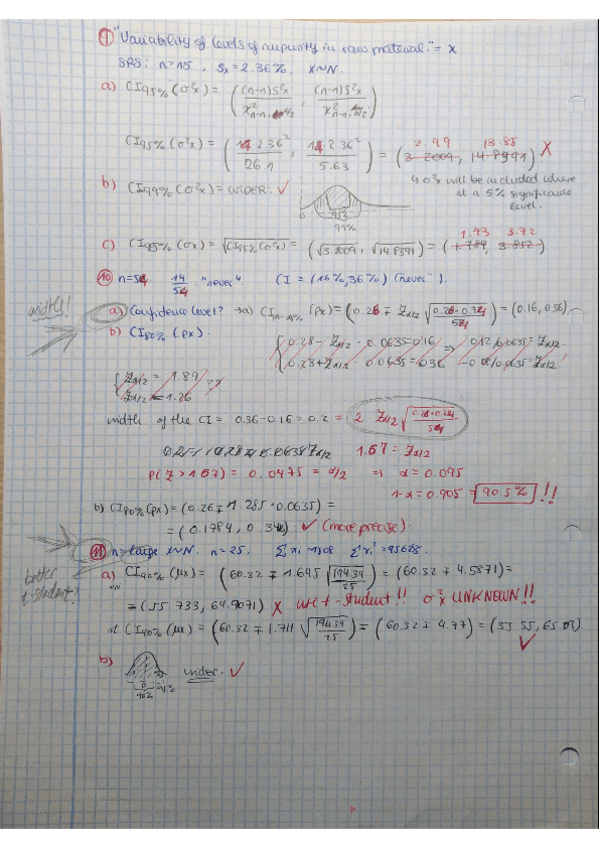 9 "Variability of levels of impurity in raw material." = X
SRS: n=15, Sx=2.36%. X~N.
a) CI95%(σ²x) = ( (n-1)S²x / χ²n-1, α/2 , (n-1)S²x / χ²n-1, α/2 )
2.99 13.85
CI95%(σ²x) = ( 14·2.36² / 26.1 , 14·2.36² / 5.63 ) = (3.2009, 14.8391) X
↳ σ²x will be included where
at a 5% significance
level.
b) CI99%(σ²x) = WIDER. ✓
99%
1.73 3.72
c) CI95%(σx) = √CI95%(σ²x) = (√3.2009, √14.8391) = (1.789, 3.852)
10 n=54. 14/54 "never". CI = (16%, 36%) ("never").
width!
a) Confidence level? → a) CI1-α%(px) = (0.26 ∓ Zα/2 √(0.26·0.74/54)) = (0.16, 0.36)
b) CI80%(px).
{ 0.28 - Zα/2 · 0.0635 = 0.16 ⇒ 0.12/0.0635 = Zα/2
0.28 + Zα/2 · 0.0635 = 0.36 -0.08/0.0635 = Zα/2
{ Zα/2 = 1.89
Zα/2 = 1.26
width of the CI = 0.36-0.16 = 0.2 = 2·Zα/2 √(0.26·0.74/54)
1.67 = Zα/2
P(Z > 1.67) = 0.0475 = α/2 ⇒ α = 0.095
1-α = 0.905 = 90.5% !!
b) CI80%(px) = (0.26 ∓ 1.285 · 0.0635) =
= (0.1784, 0.34) ✓ (more precise).
11 n=large X~N. n=25. Σxi = 1508 Σxi² = 95628.
better
t-student?
a) CI90%(μx) = (60.32 ∓ 1.645 √(194.39/25)) = (60.32 ∓ 4.5871) =
= (55.733, 64.9071) X use t-student!! σ²x UNKNOWN!!
CI90%(μ) = (60.32 ∓ 1.711 √(194.39/25)) = (60.32 ∓ 4.77) = (55.55, 65.09)
✓
b) wider. ✓
90%